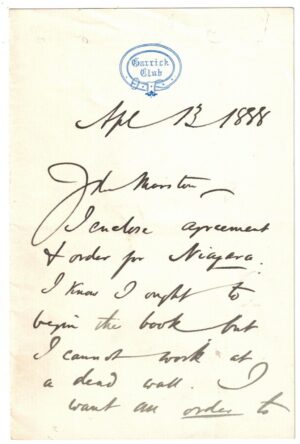 Garrick
Club
Apl 13 1888
Marston
I enclose agreement
& order for Niagara.
I know I ought to
begin the book but
I cannot work at
a dead wall. I
want an order to